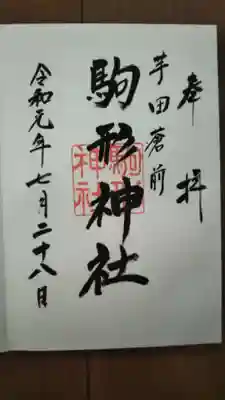 奉拝
芋田蒼前
駒形神社
駒形
神社
令和元年七月二十八日